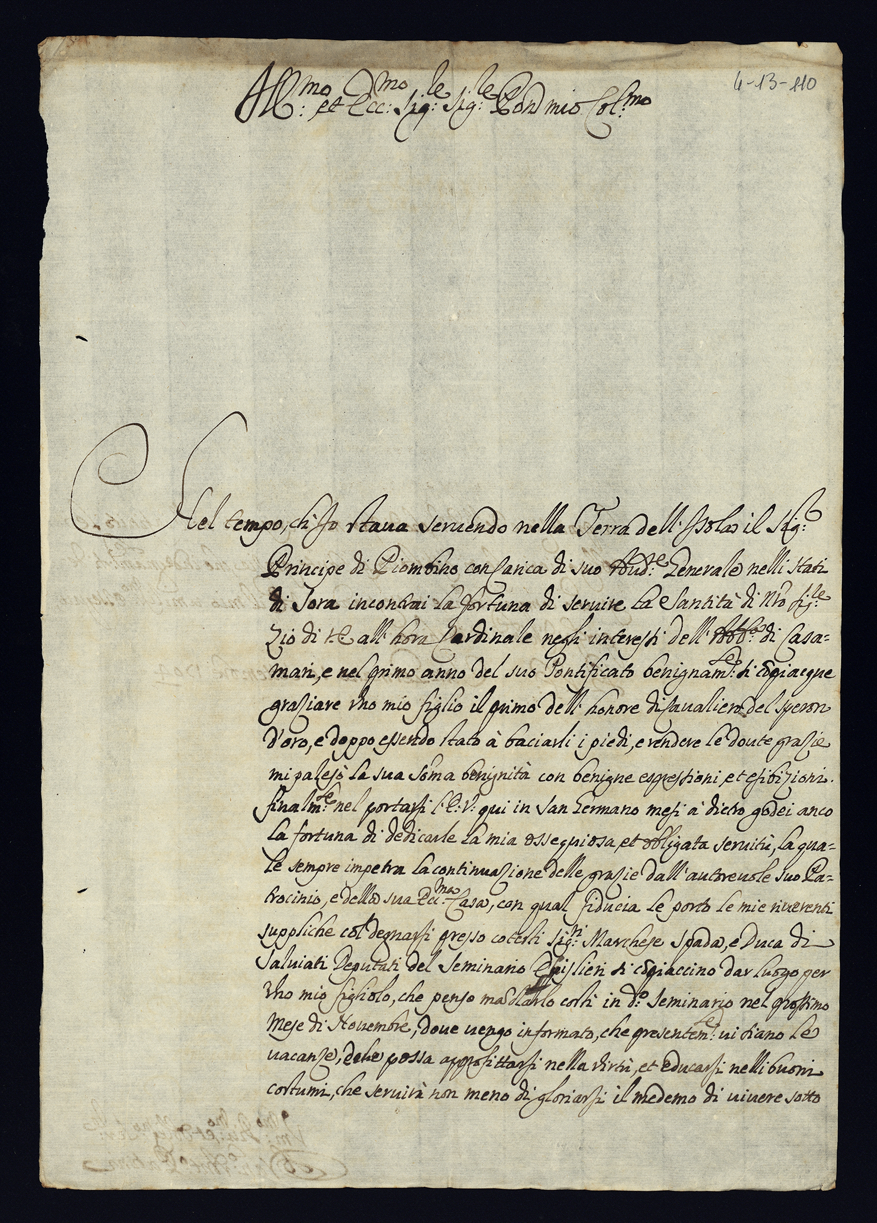 4-13-110
Ill:mo et Ecc:mo Sig:le Sig:le Pad mio Col:mo
Nel tempo, ch'Io staua seruendo nella Terra dell'Isola il Sig:
Principe di Piombino con carica di suo Aud:re Generale nelli stati
di Sora incontrai la fortuna di seruire la Santità di Nro Sig:re
Zio di V.E. all'hora Cardinale negli interessi dell' Abb:a di Casa=
mari, e nel primo anno del suo Pontificato benignam:te si compiacque
graziare vno mio figlio il primo dell'honore di Caualiero del speron
d'oro, e doppo essendo stato à baciarli i piedi, e rendere le doute grazie
mi palesò la sua somma benignità con benigne espressioni, et esibizioni.
finalm:te nel portarsi l'E:V: qui in San Germano mesi a dietro godei anco
la fortuna di dedicarle la mia ossequiosa, et obligata seruitù, la qua=
le sempre impetra la continuazione delle grazie dall'autoreuole suo Pa=
trocinio, e della sua Ecc:ma Casa, con qual fiducia le porto le mie riuerenti
suppliche col degnarsi presso cotesti Sig:ri Marchese Spada, e Duca di
Saluiati Deputati del Seminario Ghislieri si compiaccino dar luogo per
vno mio figliolo, che penso mandarlo costì in d:o Seminario nel prossimo
Mese di Nouembre, doue uengo informato, che presentem:te ui siano le
uacanze, doue possa approfittarsi nella virtù, et educarsi nelli buoni
costumi, che seruirà non meno di gloriarsi il medemo di uiuere sotto